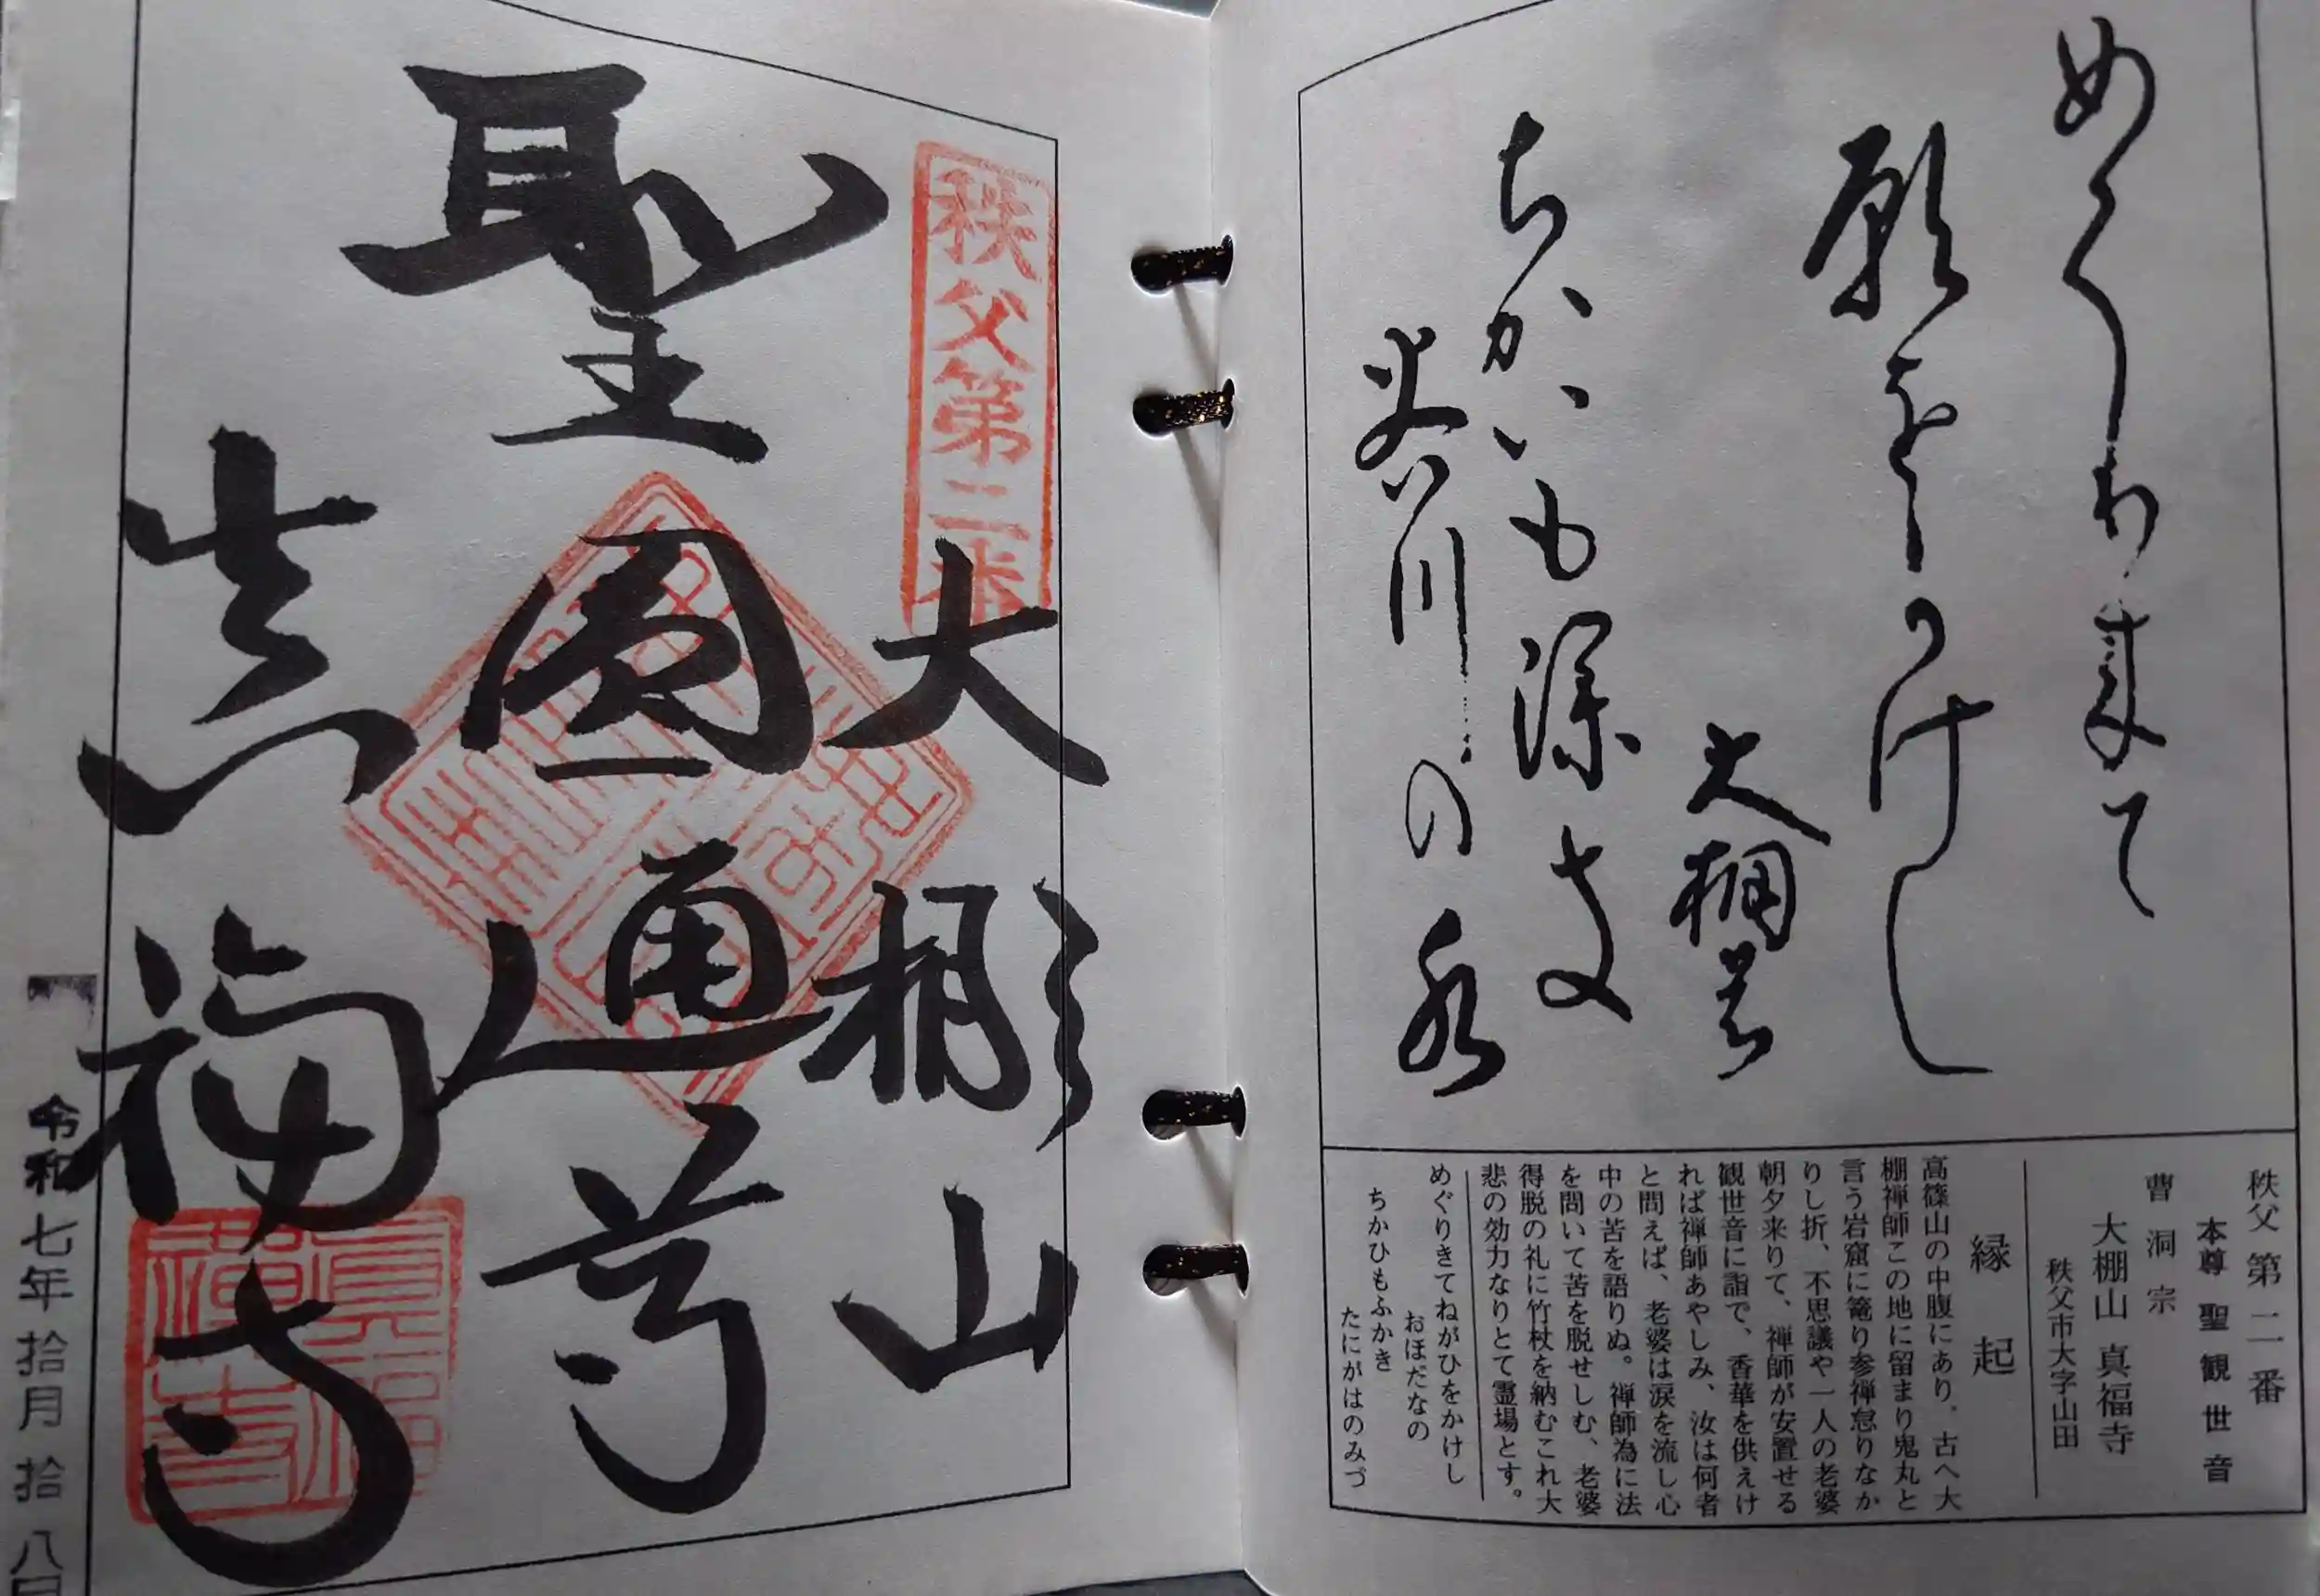 めくり来て
願をかけし
大棚の
ちかいも深き
谷川の水
秩父 第二番
本尊 聖観世音
曹洞宗
大棚山 真福寺
秩父市大字山田
縁起
高篠山の中腹にあり。古へ大
棚禅師この地に留まり鬼丸と
言う岩窟に篭り参禅怠りなか
りし折、不思議や一人の老婆
朝夕来りて、禅師が安置せる
観世音に詣で、香華を供えけ
れば禅師あやしみ、汝は何者
と問えば、老婆は涙を流し心
中の苦を語りぬ。禅師為に法
を問いて苦を脱せしむ、老婆
得脱の礼に竹杖を納むこれ大
悲の効力なりとて霊場とす。
めぐりきてねがひをかけし
おほだなの
ちかひもふかき
たにがはのみづ
秩父第二番
大棚山
聖
圓通尊
真福寺
令和七年拾月拾八日